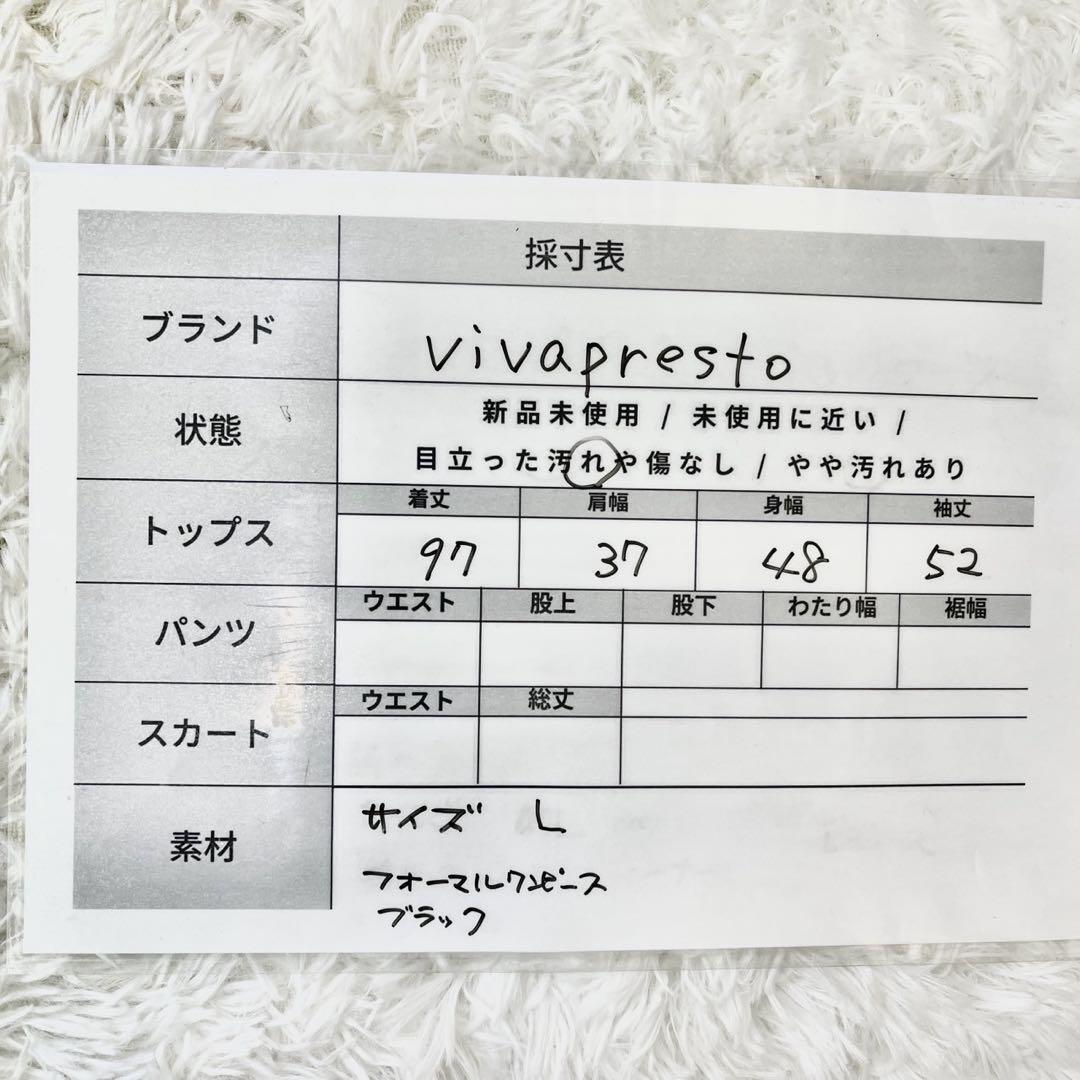 採寸表
ブランド
vivapresto
状態
新品未使用 / 未使用に近い /
目立った汚れや傷なし / やや汚れあり
トップス
着丈 肩幅 身幅 袖丈
97 37 48 52
パンツ
ウエスト 股上 股下 わたり幅 裾幅
スカート
ウエスト 総丈
素材
サイズ L
フォーマルワンピース
ブラック